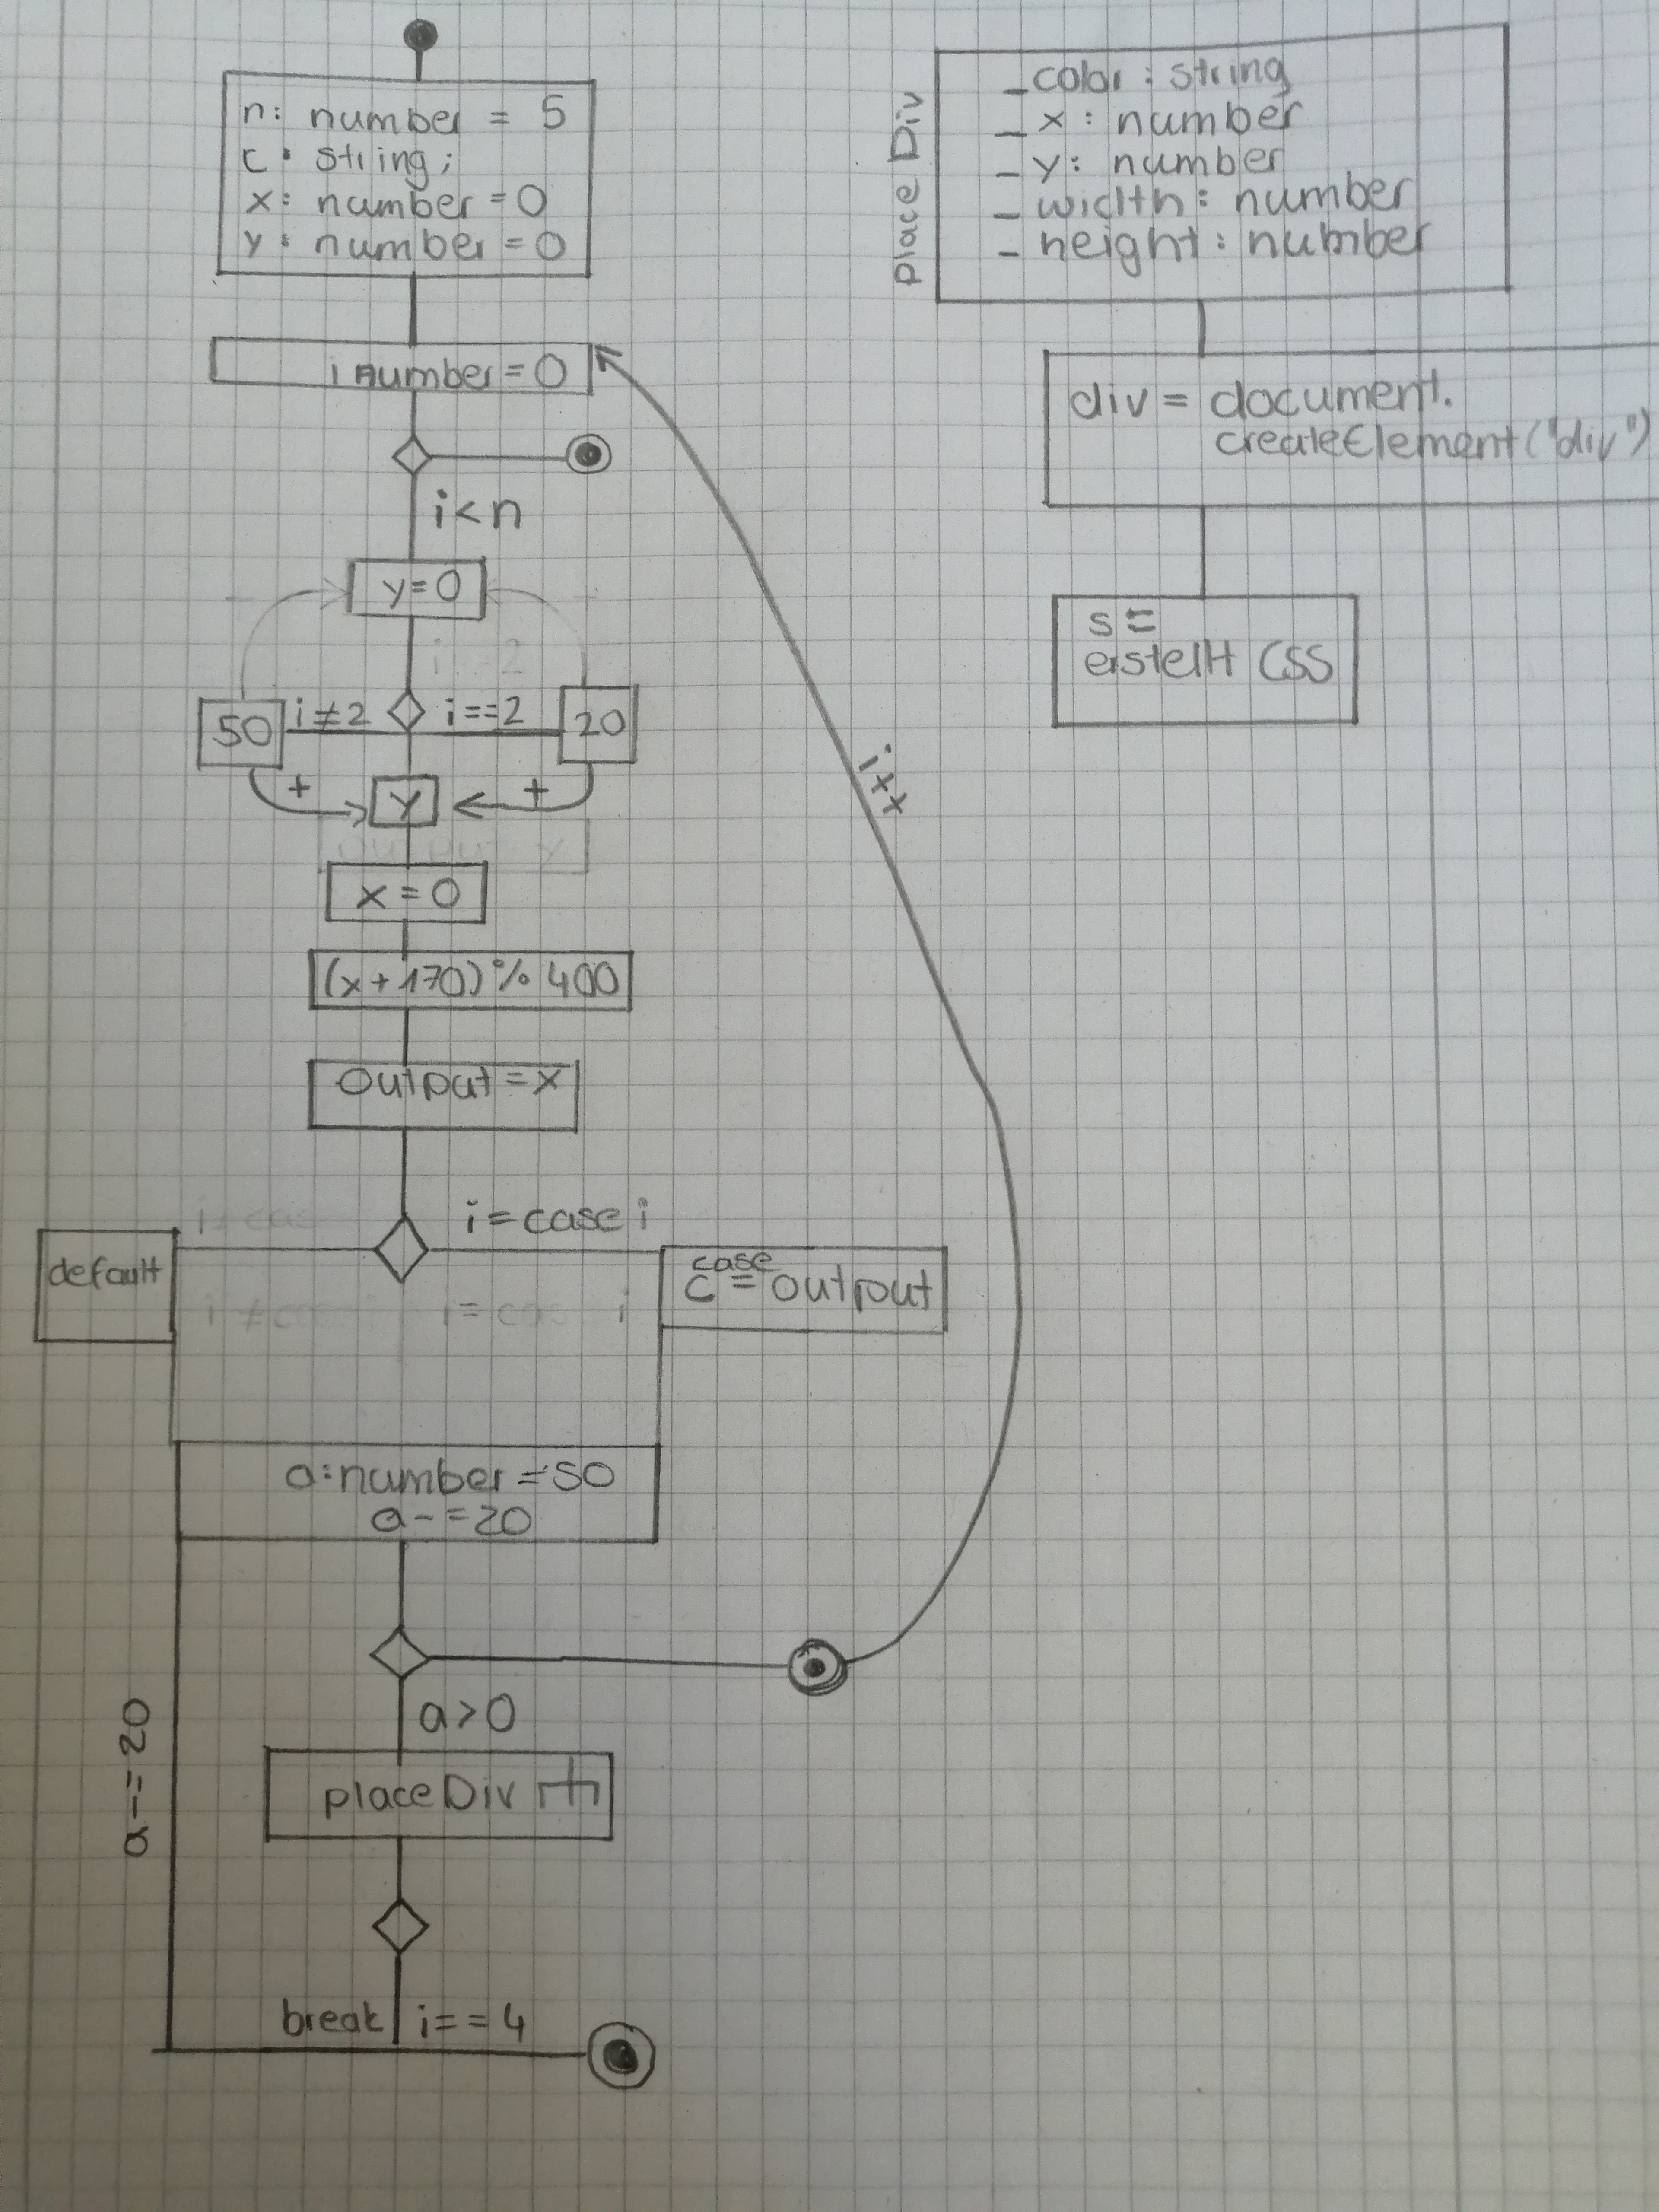 n: number = 5
c: string;
x: number = 0
y: number = 0
i number = 0
i < n
y = 0
i ≠ 2
i == 2
50
20
+
+
y
x = 0
(x + 170) % 400
output = x
i = case i
default
case
c = output
a: number = 50
a -= 20
a > 0
placeDiv
a -= 20
break
i == 4
i++
place Div
_ color : string
_ x : number
_ y : number
_ width : number
_ height : number
div = document.
createElement("div")
s =
erstellt CSS